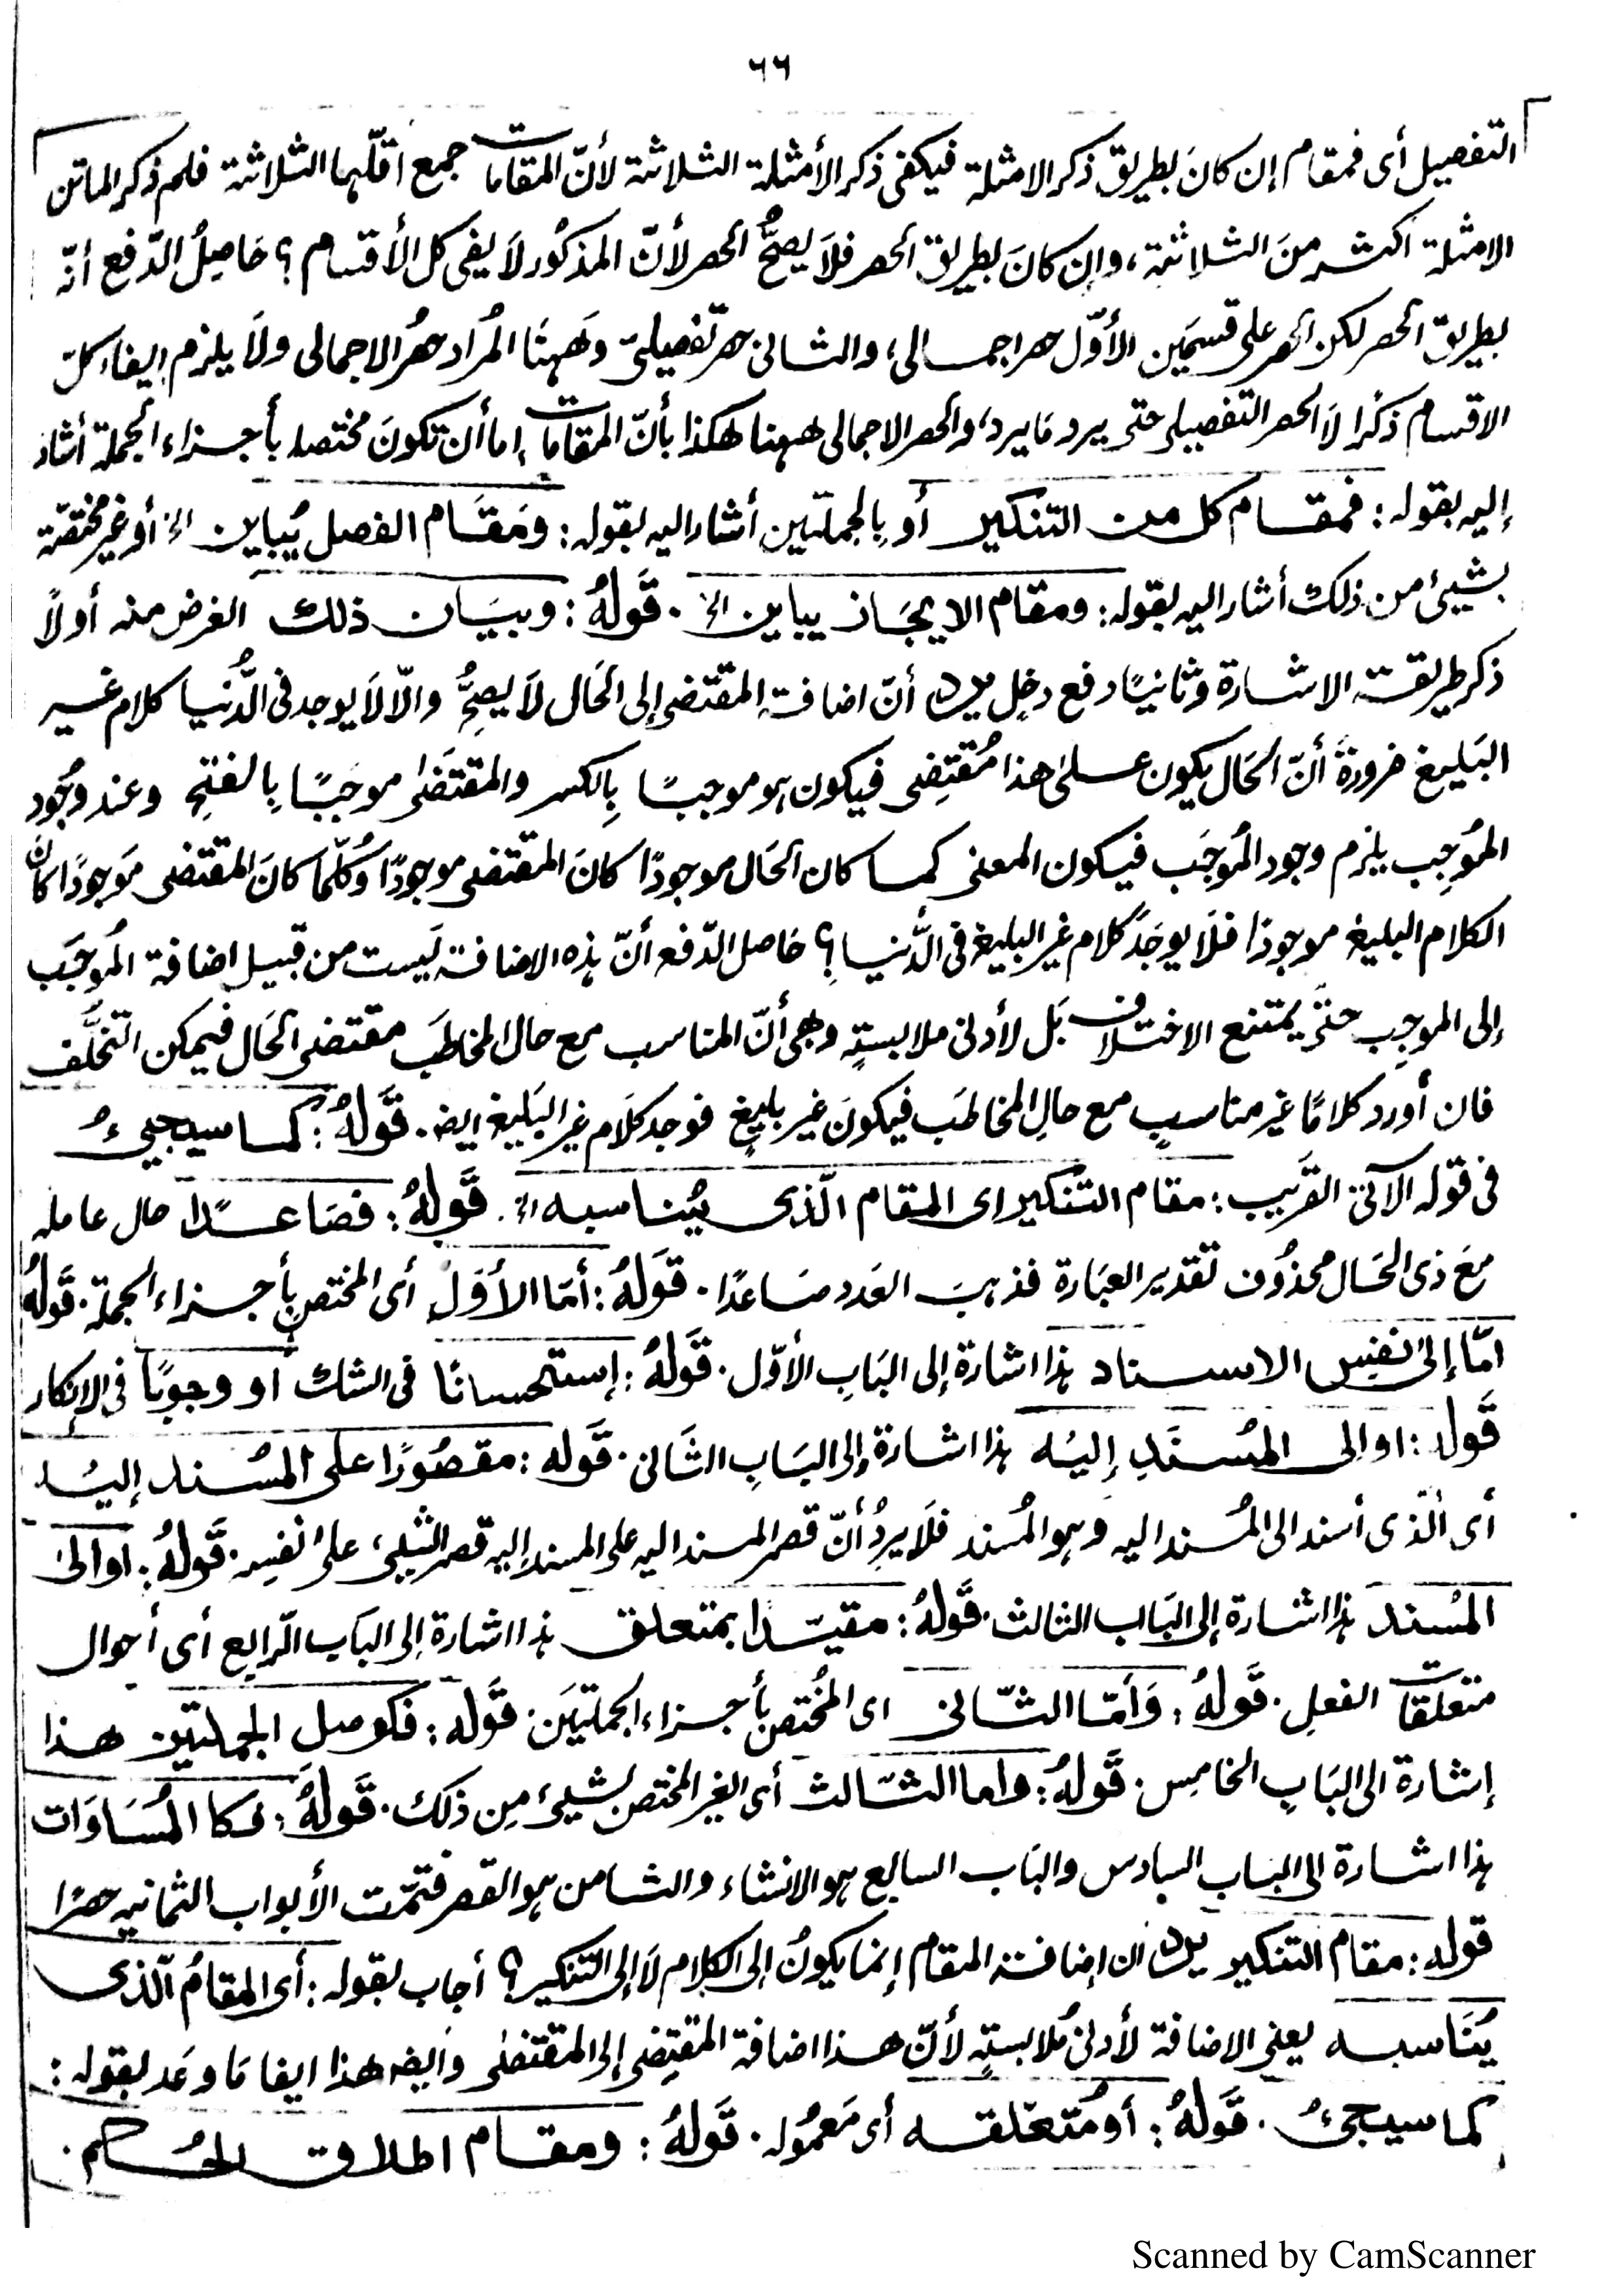 ٦٦
التفصيل أى فمقام إن كانَ بطريق ذكر الامثلة فيكفى ذكر الأمثلة الثلاثة لأنّ المقامات جمع اقلّها الثلاثة فلم ذكر الماتن
الامثلة اكثر منَ الثلاثة، وإن كانَ بطريق الحصر فلاَ يصحُّ الحصر لأنّ المذكُور لاَ يفى كل الأقسام؟ حَاصِلُ الدّفع أنّه
بطريق الحصر لكن الحصر على قسمَين الأوّل حصر اجمالى، والثانى حصر تفصيلىّ وَههنَا المُراد حصرُ الاجمالى ولاَ يلزم ايفاء كلّ
الاقسام ذكرًا لاَ الحصر التفصيلى حتى يرد مَا يرد، والحصر الاجمالى ههنا هكذا بأنّ المقامات إما أن تكونَ مختصة بأجزاء الجملة أشار
إليه بقوله: فمقام كل من التنكير أو بِالجملتين أشار اليه بقوله: ومَقَام الفصل يُباين الخ أو غير مختصّة
بشيئ من ذلك أشار اليه بقوله: ومقام الايجَاز يباين الخ. قَولهُ: وبيَان ذلك الغرض منه أولاً
ذكر طريقة الاشارة وثانيًا دفع دخلٍ يرد أنّ اضافة المقتضى إلى الحَال لاَ يصِحُّ والّا لاَ يوجد فى الدُّنيا كلام غير
البَليغ ضرورةً أنّ الحَال يكون على هذا مُقتِضى فيكون هو موجبًا بِالكسر والمقتضَى موجَبًا بِالفتحِ وعند وجُود
المُوجِب يلزم وجود المُوجَب فيكون المعنى كما كان الحَال موجودًا كانَ المقتضى موجودًا وكُلّما كانَ المقتضى مَوجودًا كانَ
الكلام البليغ موجودًا فلَا يوجَد كلام غير البليغ فى الدُّنيا؟ حَاصل الدّفع أنّ هذه الاضافة لَيست من قبيل اضافة المُوجَب
إلى الموجِب حتّى يمتنع الاختلاف بَل لأدنى ملابسةٍ وهى أنّ المناسب مع حال المخاطَب مقتضى الحَال فيمكن التخلُّف
فان أورد كلامًا غير مناسبٍ مع حالِ المخاطَب فيكونَ غير بليغٍ فوجد كلَام غير البَليغ ايضً. قَولهُ: كما سيجيئُ
فى قوله الآتى القَرِيب: مقام التنكير اى المقام الّذى يُناسبه الخ. قَولهُ: فصَاعدًا حال عامله
معَ ذى الحَال محذُوف تقدير العبَارة فذهبَ العَدد صَاعدًا. قَولهُ: أمّا الأوّل أى المختص بأجزاء الجملة. قَولهُ
امّا إلىٰ نفسِ الاسناد هذا اشارة إلى البَابِ الأوّل. قَولهُ: إستحسانًا فى الشك او وجوبًا فى الإنكار
قَوله: او الى المُسنَدِ إليهُ هذا اشارة إلى البَابِ الثَانى. قَوله: مقصُورًا على المُسند إليهُ
أى الّذى أسند الى المُسند اليه وهو المُسند فلاَ يرِدُ أنّ قصر المسند اليه على المسند إليه قصر الشيئ على نفسِه. قَولهُ: او الىٰ
المُسند هذا اشارة إلى البَاب الثالث. قَولهُ: مقيّدا بمتعلق هذا اشارة إلى البَابِ الرّابع أى أحوال
متعلقات الفعلِ. قَولهُ: وَأمّا الثّانى اى المُختص بأجزاء الجملتَين. قَوله: فكوصل الجملتين هذا
إشارة الى البَابِ الخامِس. قَولهُ: واما الثّالث أى الغير المختص بشيئ مِن ذلكَ. قَولهُ: فكا المُسَاوَات
هذا اشارة الى الباب السادس والبَاب السابع هو الانشاء والثامن هو القصر فتمّت الأبواب الثمانيه حصرًا
قوله: مقام التنكير يرد ان إضافة المقام إنما يكونُ إلى الكلام لاَ إلى التنكير؟ أجاب بقوله: أى المقامُ الّذى
يُنَاسبه يعنى الاضافة لأدنى مُلابسةٍ لأنّ هذا اضافة المقتِضى إلى المقتضىٰ وايضً هذا ايفا مَا وعَد بقوله:
كما سيجئُ. قَولهُ: أو مُتعَلقه أى مَعمُوله. قَولهُ: ومقام اطلاق الحُكم.
Scanned by CamScanner